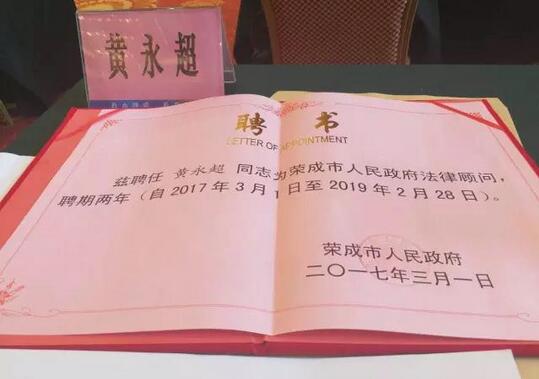 黄永超
聘书
LETTER OF APPOINTMENT
兹聘任 黄永超 同志为荣成市人民政府法律顾问，
聘期两年（自2017年3月1日至2019年2月28日）。
荣成市人民政府
二〇一七年三月一日